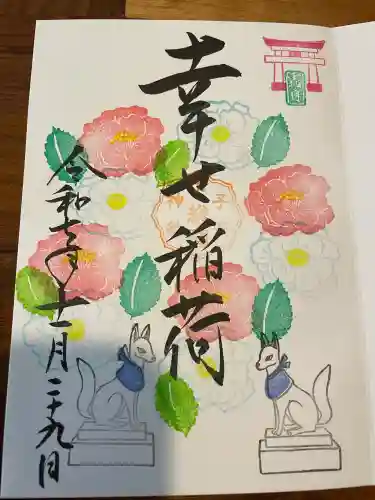 幸せ稲荷
令和七年十一月二十九日